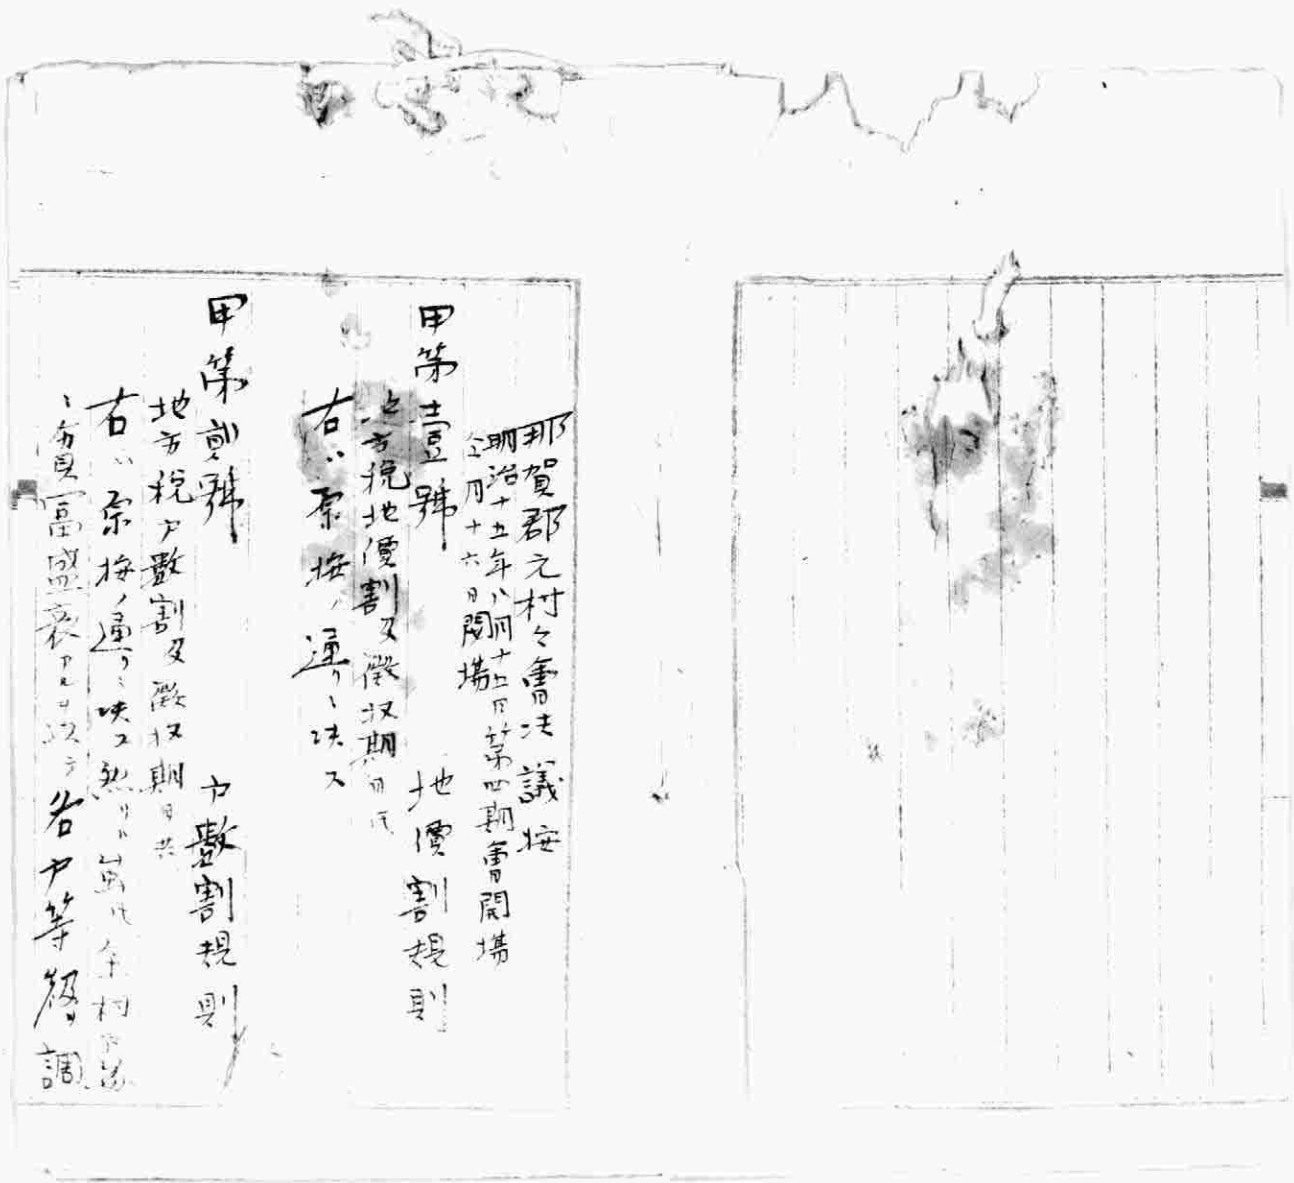 那賀郡元村々會決議按
明治十五年八月十五日第四期會開場
仝月十六日閉場
甲第壹號 地價割規則
地方税地價割及徴収期日共
右ハ原按ノ通リニ決ス
甲第貳號 戸數割規則
地方税戸數割及徴収期日共
右ハ原按ノ通リニ決ス然リト雖トモ 村
貧富盛衰アルヲ以テ各戸等級ヲ調